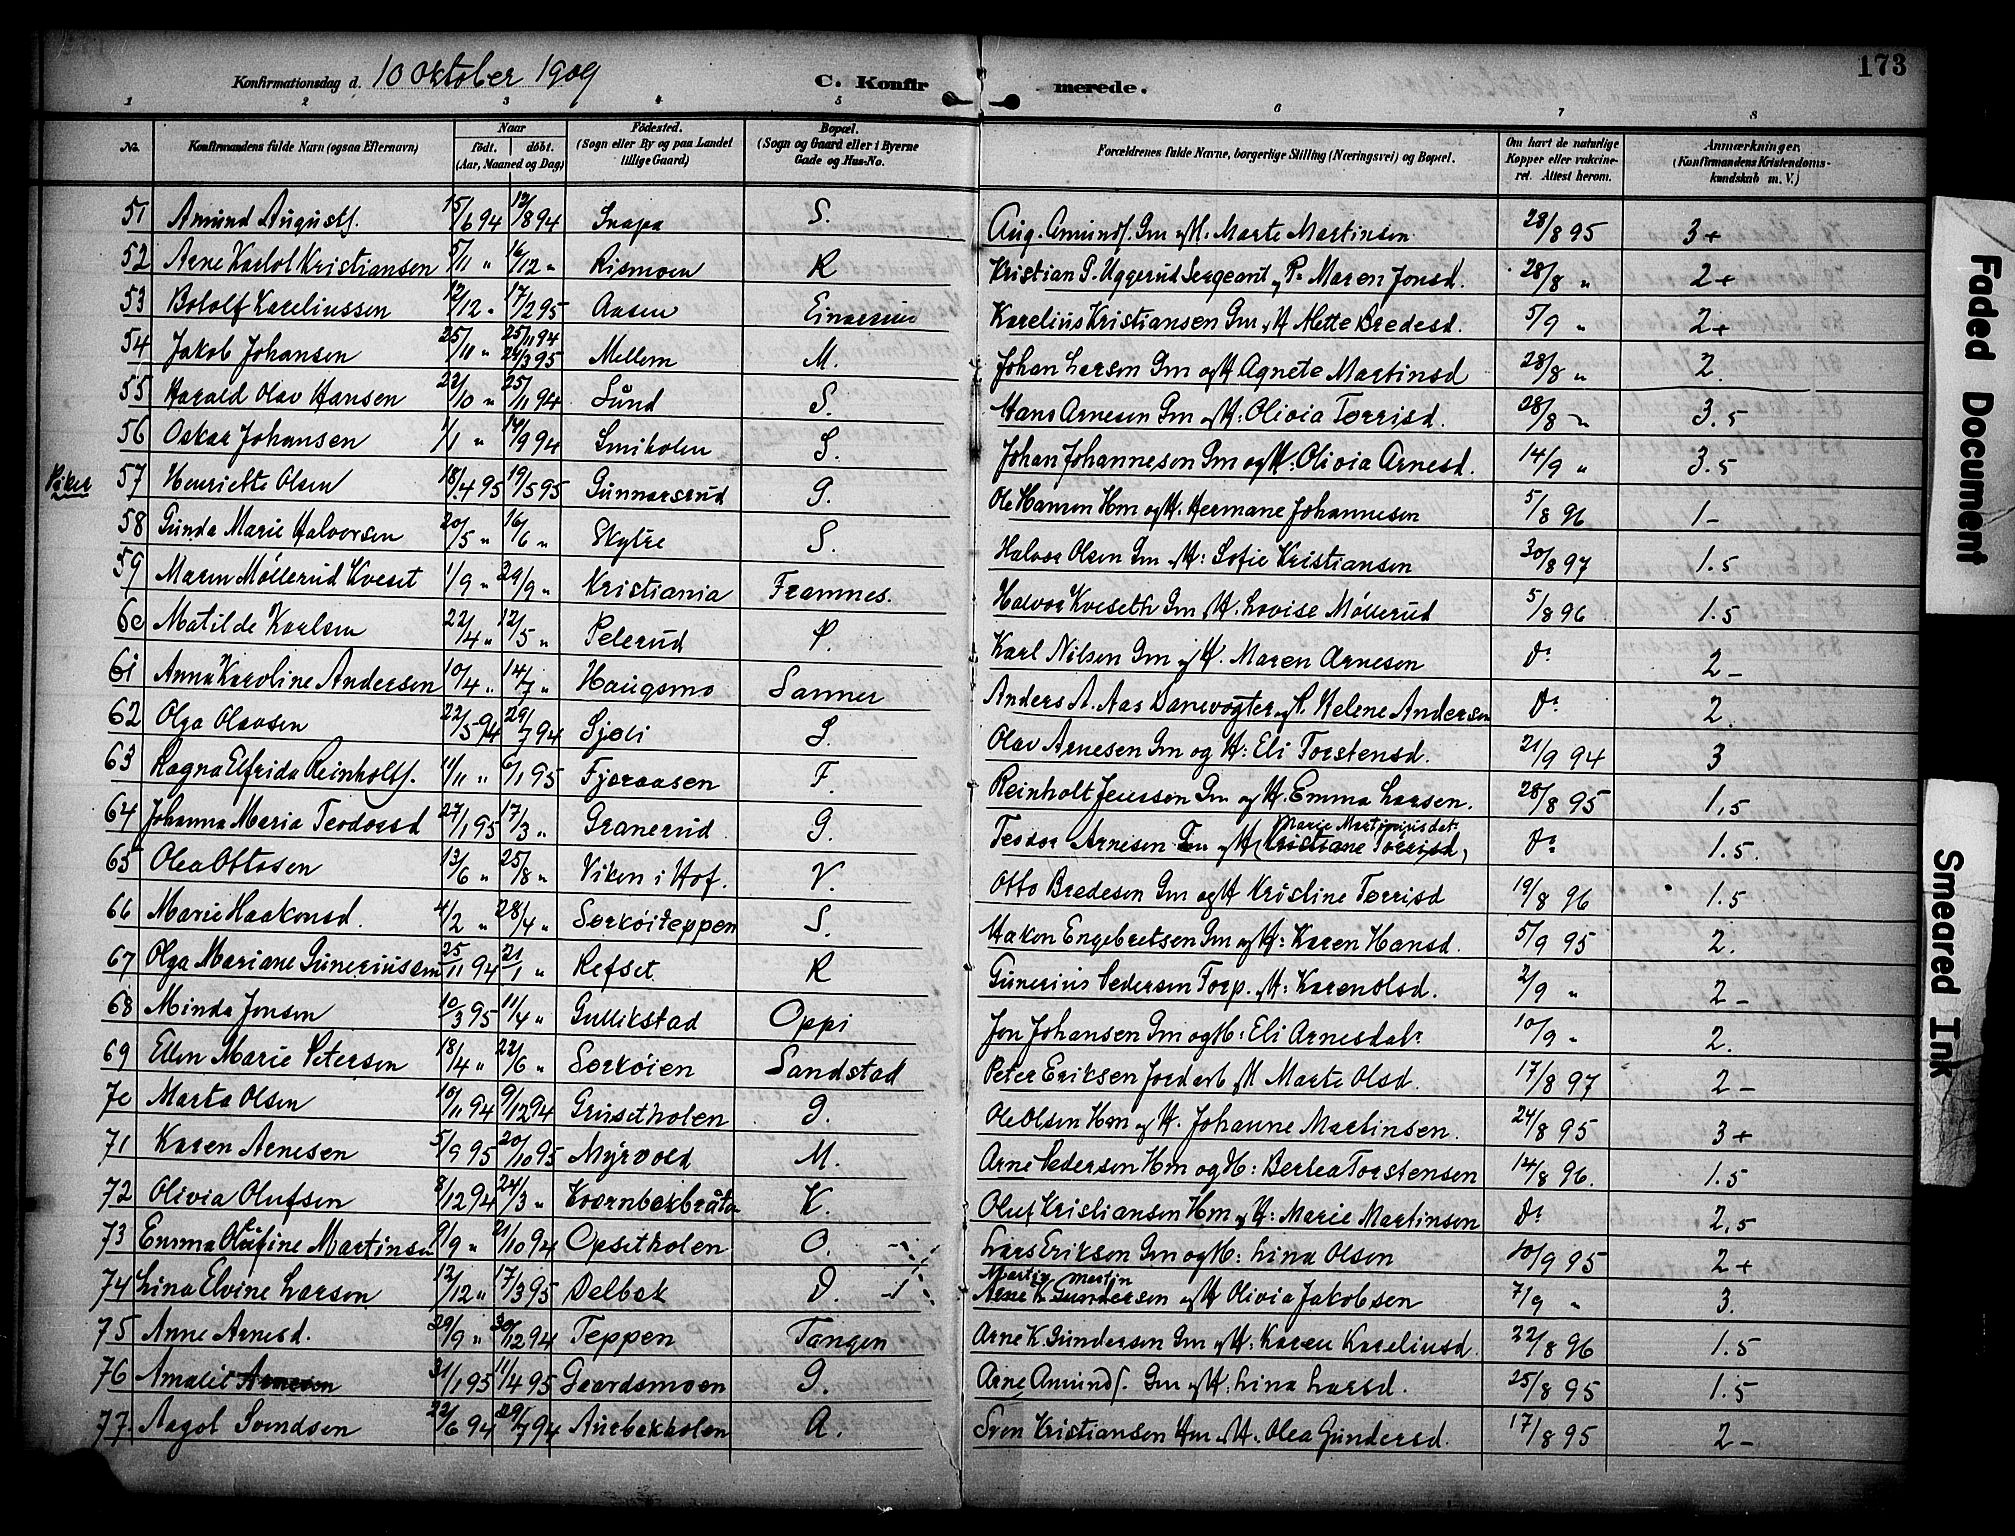 173
Konfirmationsdag d. 10 Oktober 1909 C. Konfirmerede.
1 2 3 4 5 6 7 8
No. | Konfirmandens fulde Navn (ogsaa Efternavn) | Naar født. døbt. (Aar, Maaned og Dag) | Fødested. (Sogn eller By og paa Landet tillige Gaard) | Bopæl. (Sogn og Gaard eller i Byerne Gade og Hus-No. | Forældrenes fulde Navne, borgerlige Stilling (Næringsvei) og Bopæl. | Om havt de naturlige Kopper eller vakcineret. Attest herom. | Anmærkninger. (Konfirmandens Kristendomskundskab m. V.)
51 Amund Augusts. 15/6 94 12/8 94 Snapa S. Aug. Amunds. Gm og H. Marte Martinsen 28/8 95 3+
52 Arne Karlot Kristiansen 5/11 " 16/12 " Rismoen R Kristian P. Uggerud Sergeant og P. Maren Jonsd. 28/8 " 2+
53 Botolf Kareliussen 12/12 " 17/2 95 Aasen Einarsrud Karelius Kristiansen Gm og H Mette Bredesd. 5/9 " 2+
54 Jakob Johansen 25/11 " 25/11 94 24/3 95 Mellem M. Johan Larsen Gm og H Agnete Martinsd 28/8 " 2.
55 Harald Olav Hansen 22/10 " 25/11 94 Lund S. Hans Arnesen Gm og H: Olivia Torrisd. 28/8 " 3.5
56 Oskar Johansen 1/1 " 14/9 94 Smiholen S. Johan Johannesen Gm og H: Olivia Arnesd. 14/9 " 3.5
Piker
57 Henriette Olsen 18/4 95 19/5 95 Gunnarsrud G. Ole Hansen Hm og H. Hermane Johannesen 5/8 96 1-
58 Gunda Marie Halvorsen 20/5 " 16/6 " Skytre S. Halvor Olsen Gm og H: Sofie Kristiansen 30/8 97 1.5
59 Maren Møllerud Kveset 1/9 " 29/9 " Kristiania Framnes. Halvor Kveseth Gm og H. Lovise Møllerud 5/8 96 1.5
60 Matilde Karlsen 22/4 " 12/5 " Pelerud P. Karl Nilsen Gm og H. Maren Arnesen Do 2-
61 Anna Karoline Andersen 10/4 " 14/7 " Haugsmo Sanner Anders A. Aas Banevogter og H. Helene Andersen Do 2.
62 Olga Olavsen 22/5 94 29/7 94 Sjøli S. Olav Arnesen Gm og H: Eli Torstensd. 21/9 94 3
63 Ragna Elfrida Reinholts. 11/11 " 6/1 95 Fjøraasen F. Reinholt Jensson Gm og H. Emma Larsen. 28/8 95 1,5
64 Johanna Maria Teodorsd 27/1 95 17/3 " Granerud G. Teodor Arnesen Gm og H Marie Martiniusdat. Kristiane Torrisd, Do 1.5.
65 Olea Ottosen 13/6 " 25/8 " Viken i Hof. V. Otto Bredesen Gm og H Kristine Torrisd 19/8 96 1.5
66 Marie Haakonsd. 4/2 " 28/4 " Sorkøiteppen S. Hakon Engebretsen Gm og H: Karen Hansd. 5/9 95 2.
67 Olga Mariane Guneriussen 25/11 94 21/1 " Refset R Gunerius Pedersen Torp. og H: Karen Olsd. 2/9 " 2-
68 Minda Jonsen 10/3 95 11/4 " Gullikstad Oppi Jon Johansen Gm og H: Eli Arnesdatr 10/9 " 2.
69 Ellen Marie Petersen 18/4 " 22/6 " Sorkøien Sandstad Peter Eriksen Jordarb og H Marte Olsd. 17/8 97 2-
70 Marta Olsen 10/11 94 9/12 94 Grusetholen G. Ole Olsen Hm og H. Johanne Martinsen. 24/8 95 3+
71 Karen Arnesen 5/9 95 20/10 95 Myrvold M. Arne Pedersen Hm og H: Bertea Torstensen 14/8 96. 1.5
72 Olivia Olufsen 3/12 94 24/3 " Kvernbekbråten K. Oluf Kristiansen Hm og H: Marie Martinsen Do 2,5
73 Emma Olufine Martinsen 9/9 " 21/10 94 Opsetholen O. Lars Eriksen Gm og H: Lina Olsen 10/9 95 2+
74 Lina Elvine Larsen 12/12 " 17/3 95 Delbek D. Martin Martin Arne K. Gundersen og H Olivia Jakobsen 7/9 " 3.
75 Anne Arnesd. 29/9 " 30/12 94 Teppen Tangen Arne K. Gundersen Gm og H: Karen Kareliusd. 22/8 96 1.5
76 Amalie Arnesen 31/1 95 11/4 95 Gaardsmoen G. Arne Amunds. Gm og H: Lina Larsd. 25/8 95 1.5
77. Aagot Svendsen 22/6 94 29/7 94 Aurbekholen A. Sven Kristiansen Hm og H. Olea Gundersd. 17/8 95 2-
Faded Document
Smeared Ink